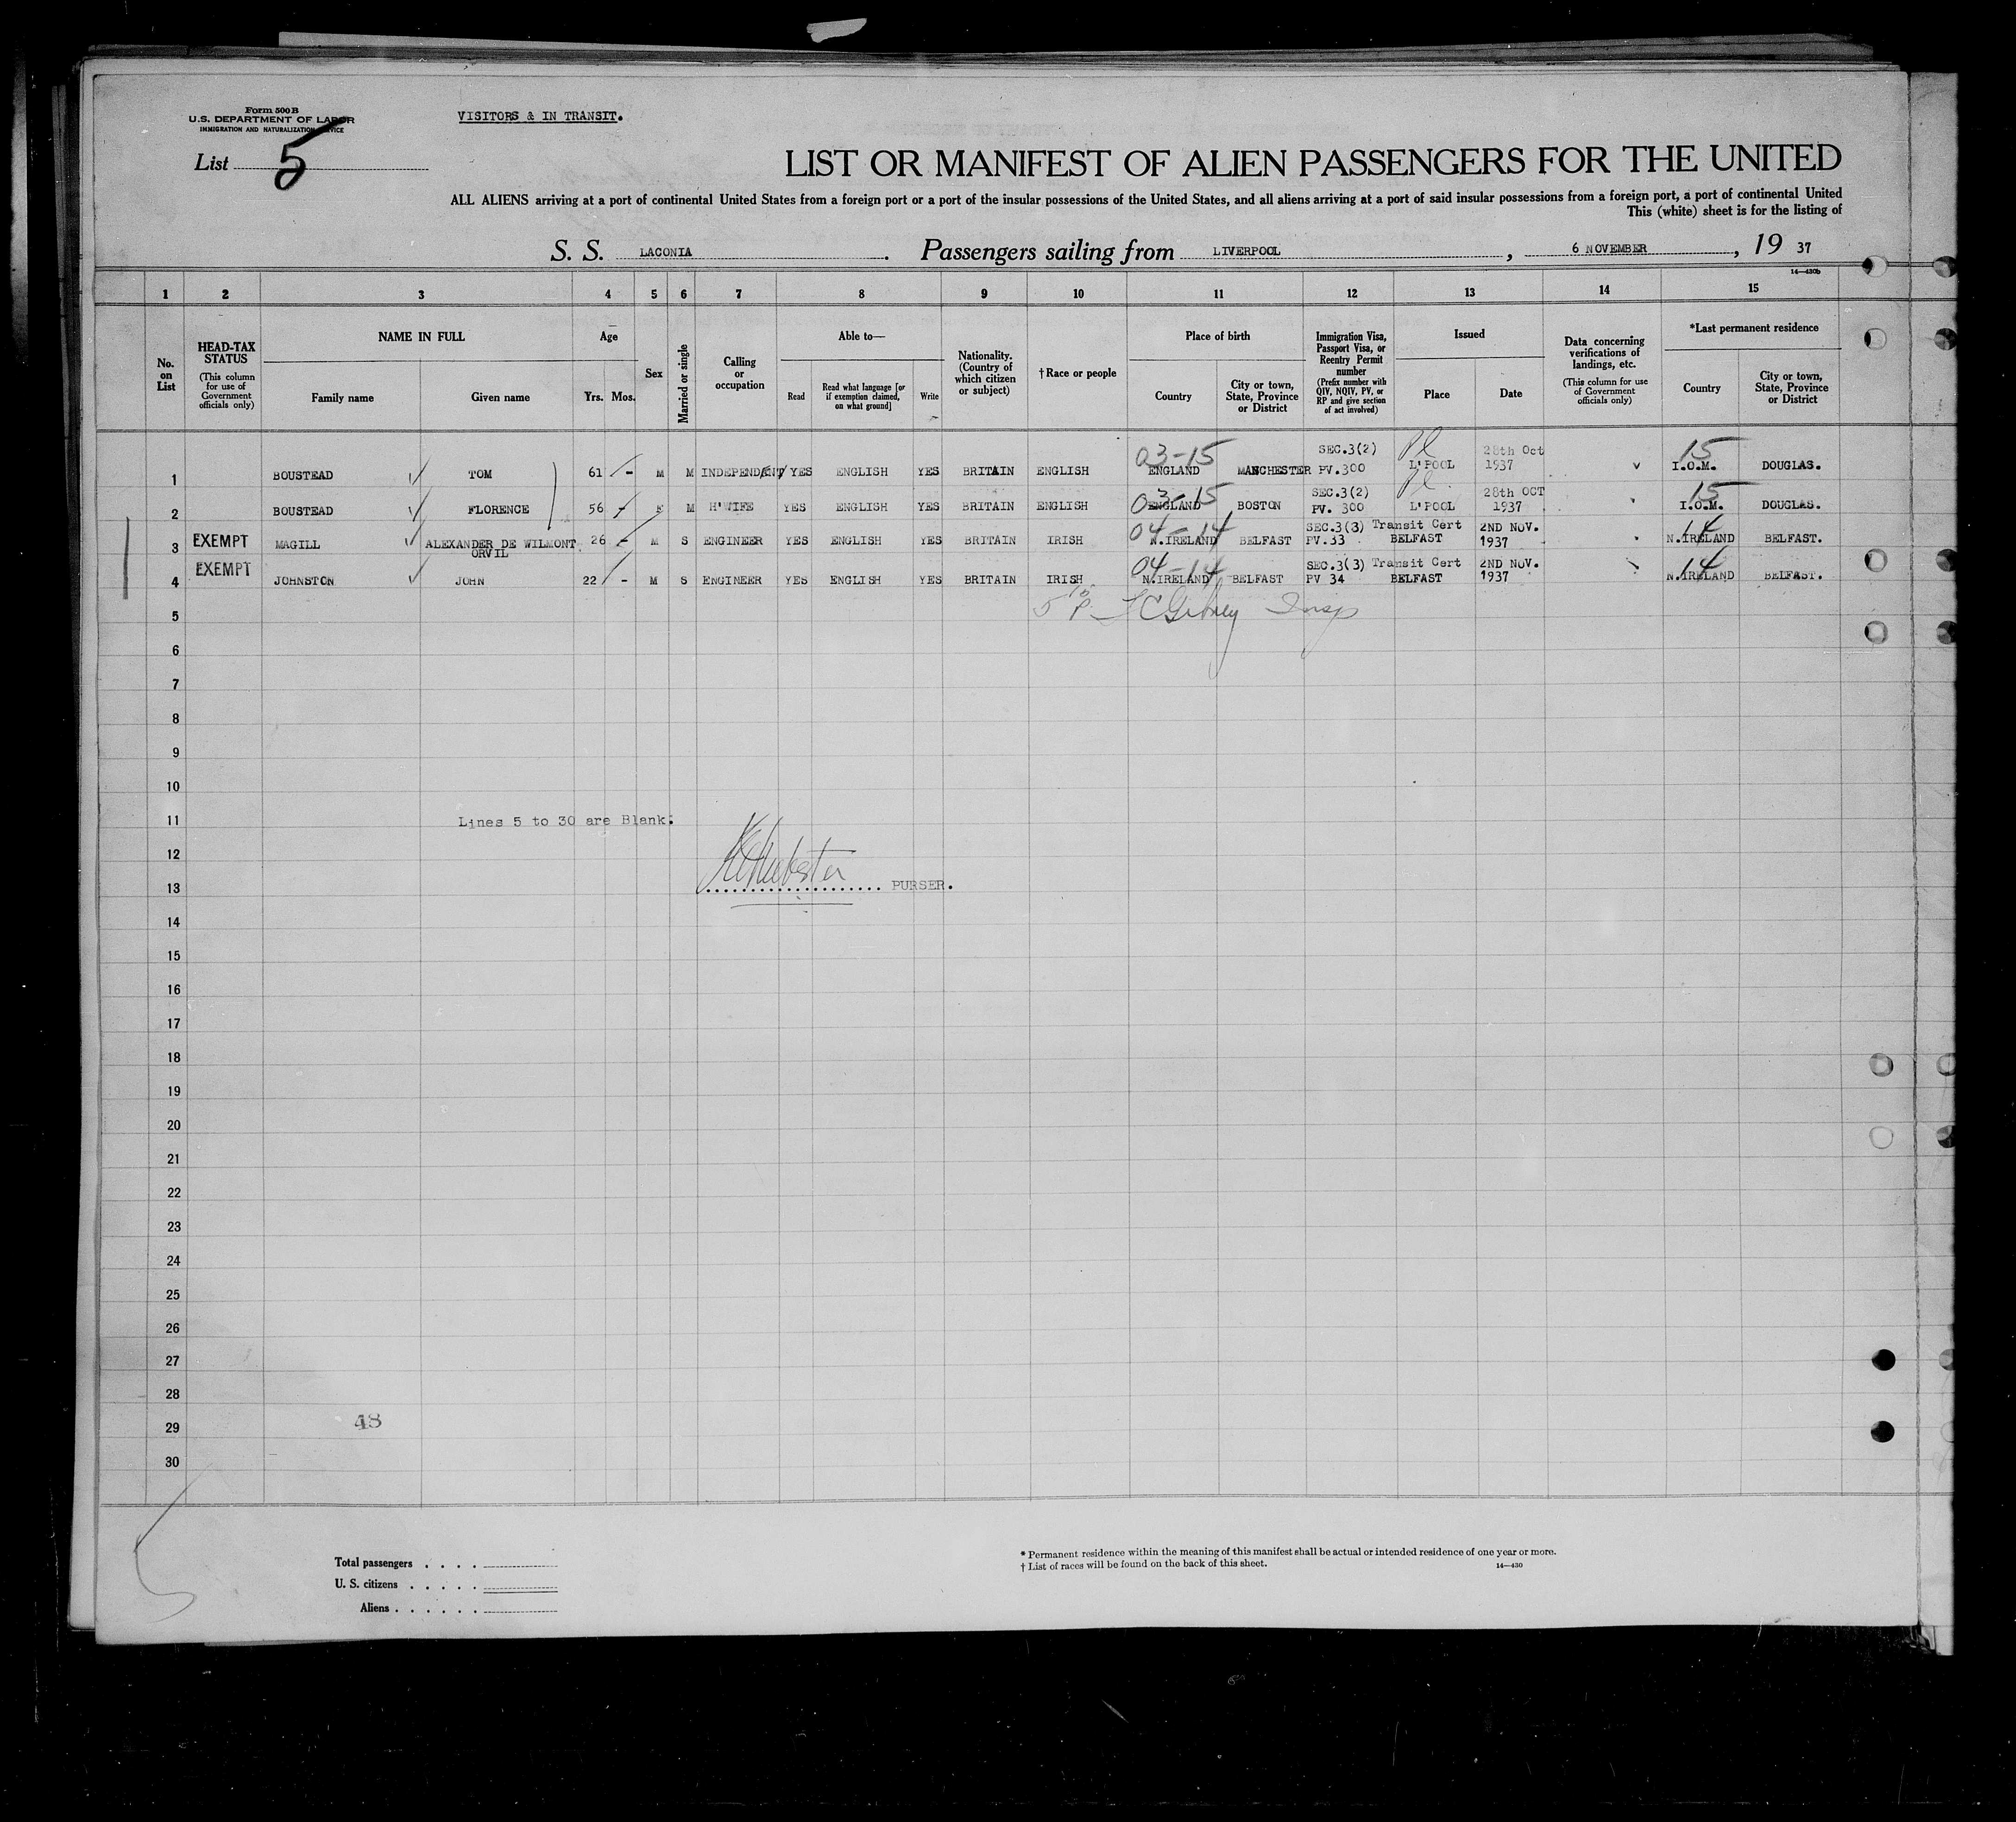 Form 500 B
U.S. DEPARTMENT OF LABOR
IMMIGRATION AND NATURALIZATION SERVICE
VISITORS & IN TRANSIT.
List 5
LIST OR MANIFEST OF ALIEN PASSENGERS FOR THE UNITED
ALL ALIENS arriving at a port of continental United States from a foreign port or a port of the insular possessions of the United States, and all aliens arriving at a port of said insular possessions from a foreign port, a port of continental United
This (white) sheet is for the listing of
S. S. LACONIA. Passengers sailing from LIVERPOOL, 6 NOVEMBER, 19 37
14—430b
1 2 3 4 5 6 7 8 9 10 11 12 13 14 15
No. on List
HEAD-TAX STATUS
(This column for use of Government officials only)
NAME IN FULL
Family name Given name
Age
Yrs. Mos.
Sex
Married or single
Calling or occupation
Able to—
Read
Read what language [or if exemption claimed, on what ground]
Write
Nationality. (Country of which citizen or subject)
†Race or people
Place of birth
Country
City or town, State, Province or District
Immigration Visa, Passport Visa, or Reentry Permit number
(Prefix number with QIV, NQIV, PV, or RP and give section of act involved)
Issued
Place Date
Data concerning verifications of landings, etc.
(This column for use of Government officials only)
*Last permanent residence
Country
City or town, State, Province or District
03-15 SEC.3(2) Pl 28th Oct 15
1 BOUSTEAD TOM 61 - M M INDEPENDENT YES ENGLISH YES BRITAIN ENGLISH ENGLAND MANCHESTER PV.300 L'POOL 1937 v I.O.M. DOUGLAS.
03-15 SEC.3(2) Pl 28th OCT 15
2 BOUSTEAD FLORENCE 56 - F M H'WIFE YES ENGLISH YES BRITAIN ENGLISH ENGLAND BOSTON PV. 300 L'POOL 1937 I.O.M. DOUGLAS.
04-14 SEC.3(3) Transit Cert 2ND NOV. 14
3 EXEMPT MAGILL ALEXANDER DE WILMONT ORVIL 26 - M S ENGINEER YES ENGLISH YES BRITAIN IRISH N.IRELAND BELFAST PV.33 BELFAST 1937 N.IRELAND BELFAST.
04-14 SEC.3(3) Transit Cert 2ND NOV. 14
4 EXEMPT JOHNSTON JOHN 22 - M S ENGINEER YES ENGLISH YES BRITAIN IRISH N.IRELAND BELFAST PV 34 BELFAST 1937 N.IRELAND BELFAST.
5 Insp
6
7
8
9
10
11 Lines 5 to 30 are Blank.
12
13 PURSER.
14
15
16
17
18
19
20
21
22
23
24
25
26
27
28
29 48
30
Total passengers
U. S. citizens
Aliens
* Permanent residence within the meaning of this manifest shall be actual or intended residence of one year or more.
† List of races will be found on the back of this sheet.
14—430